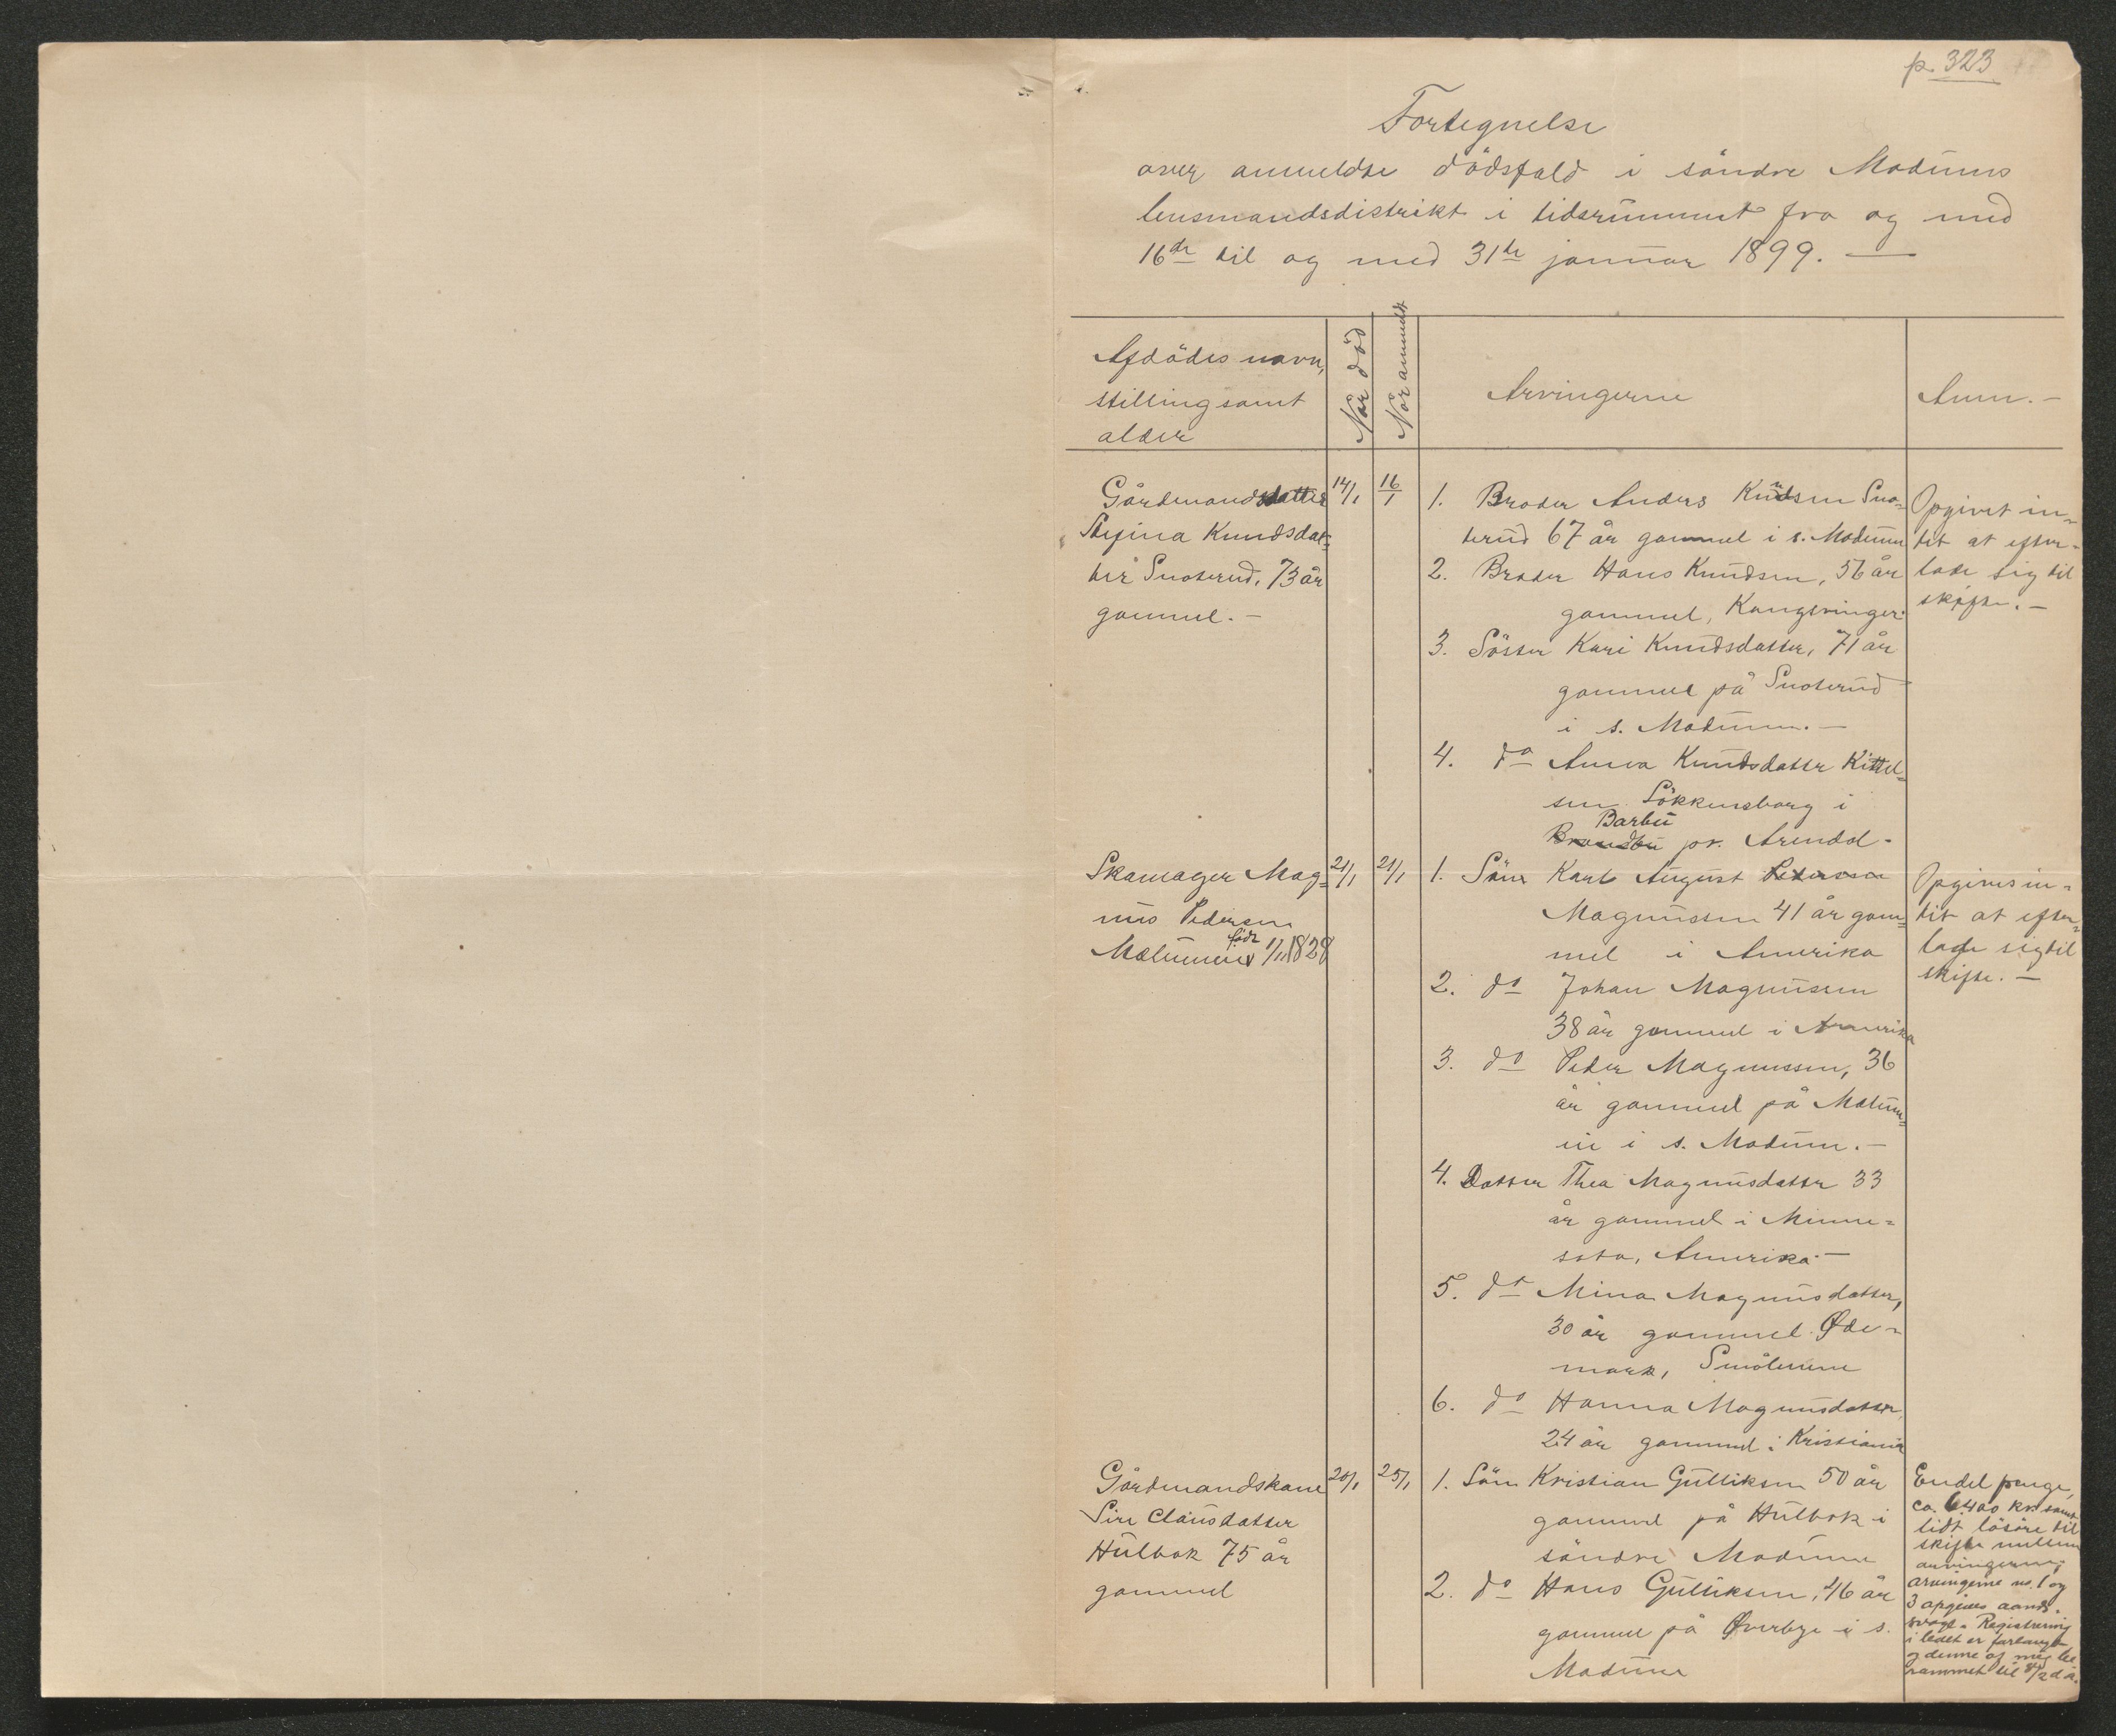 p. 323
Fortegnelse
over anmeldte dödsfald i söndre Modums
lensmandsdistrikt i tidsrummet fra og med
16de til og med 31te januar 1899. —
Afdödes navn,
stilling samt
alder
Når död
Når anmeldt
Arvingerne
Anm. -
Gårdmandsdatter
Knudsdat-
ter Snoterud, 73 år
gammel. -
14/1
16/1
1. Broder Anders Knudsen Sno-
terud 67 år gammel i s. Modum
2. Broder Hans Knudsen, 56 år
gammel, Kongsvinger.
3. Söster Kari Knudsdatter, 71 år
gammel på Snoterud
i s. Modum. -
4. do Anna Knudsdatter Kittel-
sen Lökkensborg i
Barbu
Brandbu pr. Arendal.
Opgivet in-
tet at efter-
lade sig til
skifte. -
Skomager Mag-
nus Pedersen
födt 1/1 1828
21/1
21/1
1. Sön Karl August Peterson
Magnussen 41 år gam-
mel i Amerika
2. do Johan Magnussen
38 år gammel i Amerika
3. do Peder Magnussen, 36
år gammel på Mælum-
en i s. Modum. -
4. Datter Thea Magnusdatter 33
år gammel i Minne-
sota, Amerika. -
5. do Mina Magnusdatter,
30 år gammel. Øde-
mark, Smålenene
6. do Hanna Magnusdatter,
24 år gammel i Kristiania
Opgives in-
tet at efter-
lade sig til
skifte. -
Gårdmandskone
Siri Clausdatter
Hulbak 75 år
gammel
20/1
25/1
1. Sön Kristian Gulliksen 50 år
gammel på Hulbak i
söndre Modum
2. do Hans Gulliksen, 46 år
gammel på Øverbye i s.
Modum
Endel penge,
ca. 6400 kr. samt
lidt lösöre til
skifte mellem
arvingerne;
arvingerne no. 1 og
3 opgives aands-
svage. Registrering
i boet er forlangt
og denne af mig be-
rammet til 8/2 d.å.